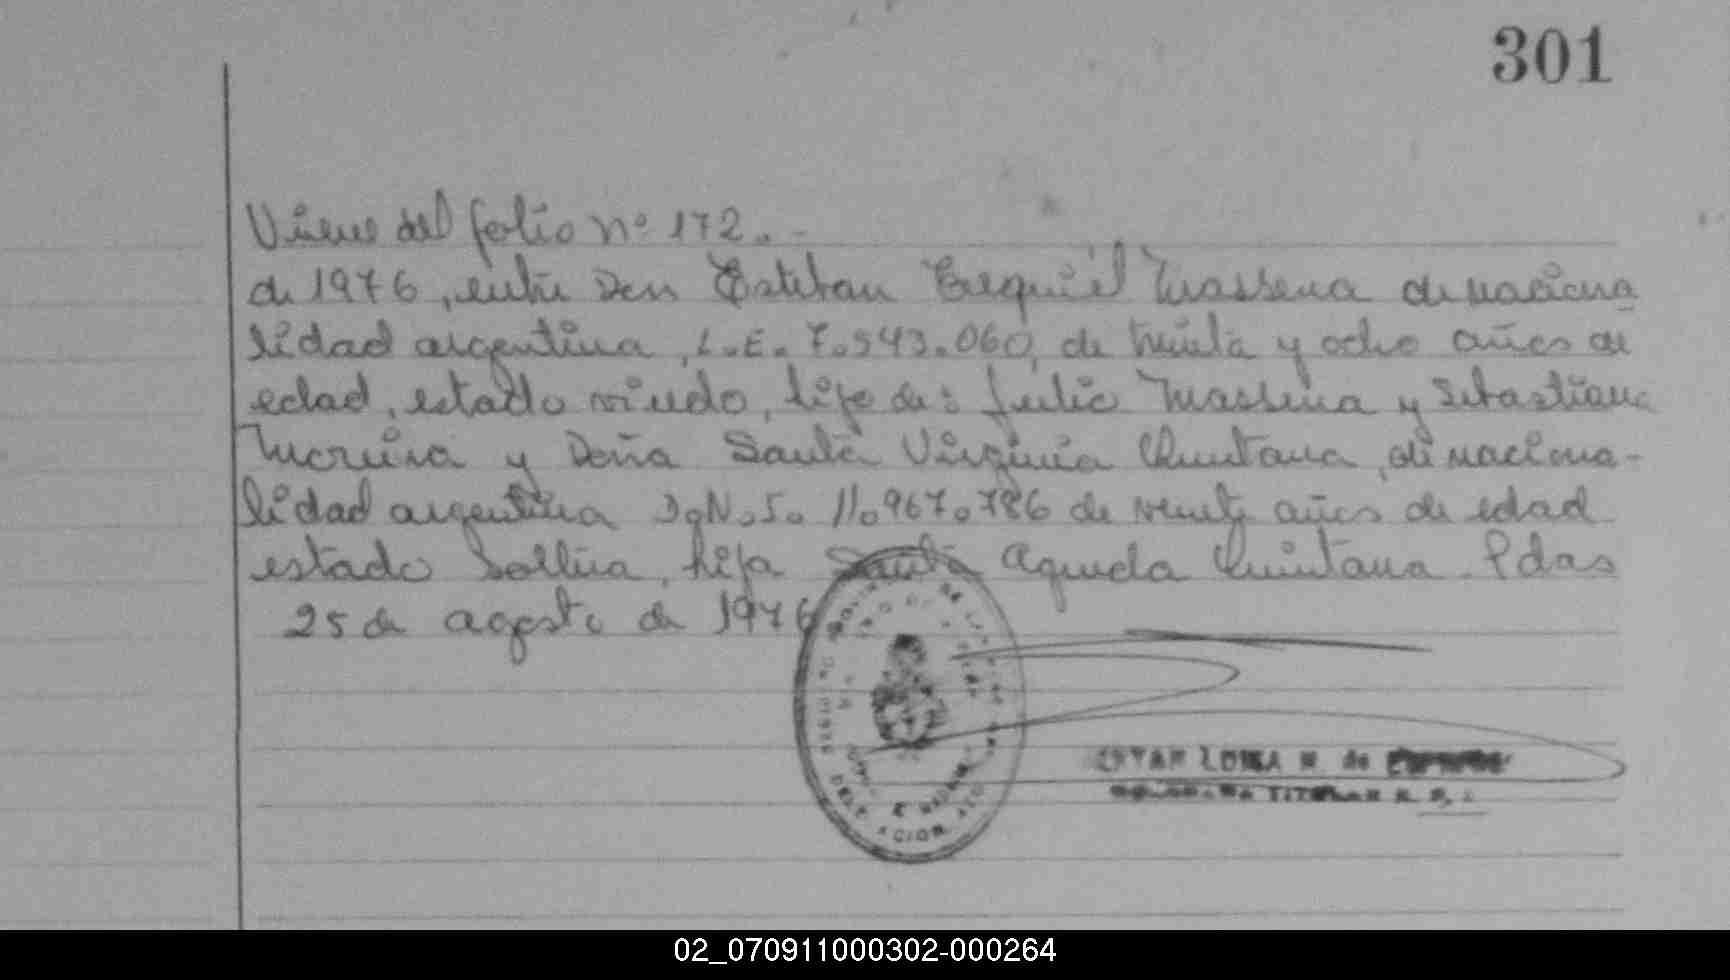 301
Viene del folio nº 172.-
de 1976, entre Don Esteban Ezequiel Massena de naciona
lidad argentina, L.E. 7.943.060, de treinta y ocho años de
edad, estado viudo, hijo de: Julio Massena y Sebastiana
Moreira y Doña Santa Virginia Quintana, de naciona-
lidad argentina D.N.I. 11.967.786 de veinte años de edad
estado soltera, hija Santa Agueda Quintana. Pdas
25 de agosto de 1976
LUISA M. de
TITULAR
02_070911000302-000264